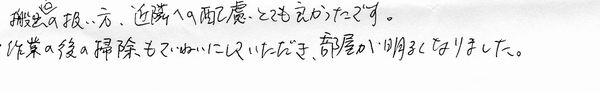 搬出の扱い方、近隣への配慮、とても良かったです。
作業の後の掃除もていねいにしていただき、部屋が明るくなりました。